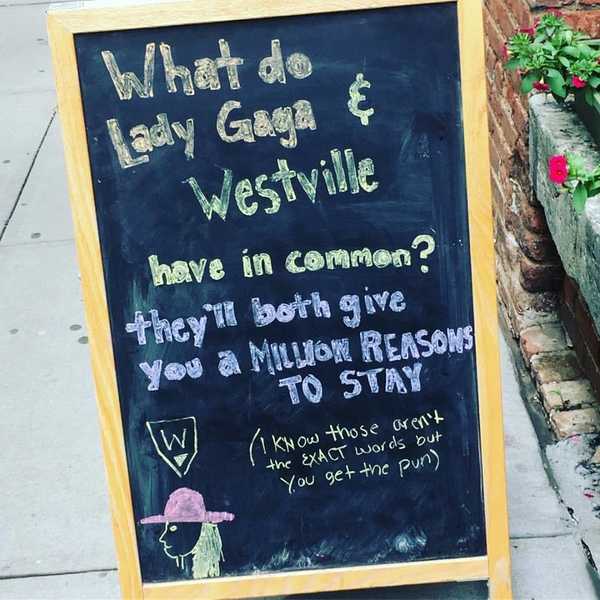 What do
Lady Gaga &
Westville
have in common?
they'll both give
you a MILLION REASONS
TO STAY
(I KNOW those aren't
the EXACT words but
you get the pun)
W